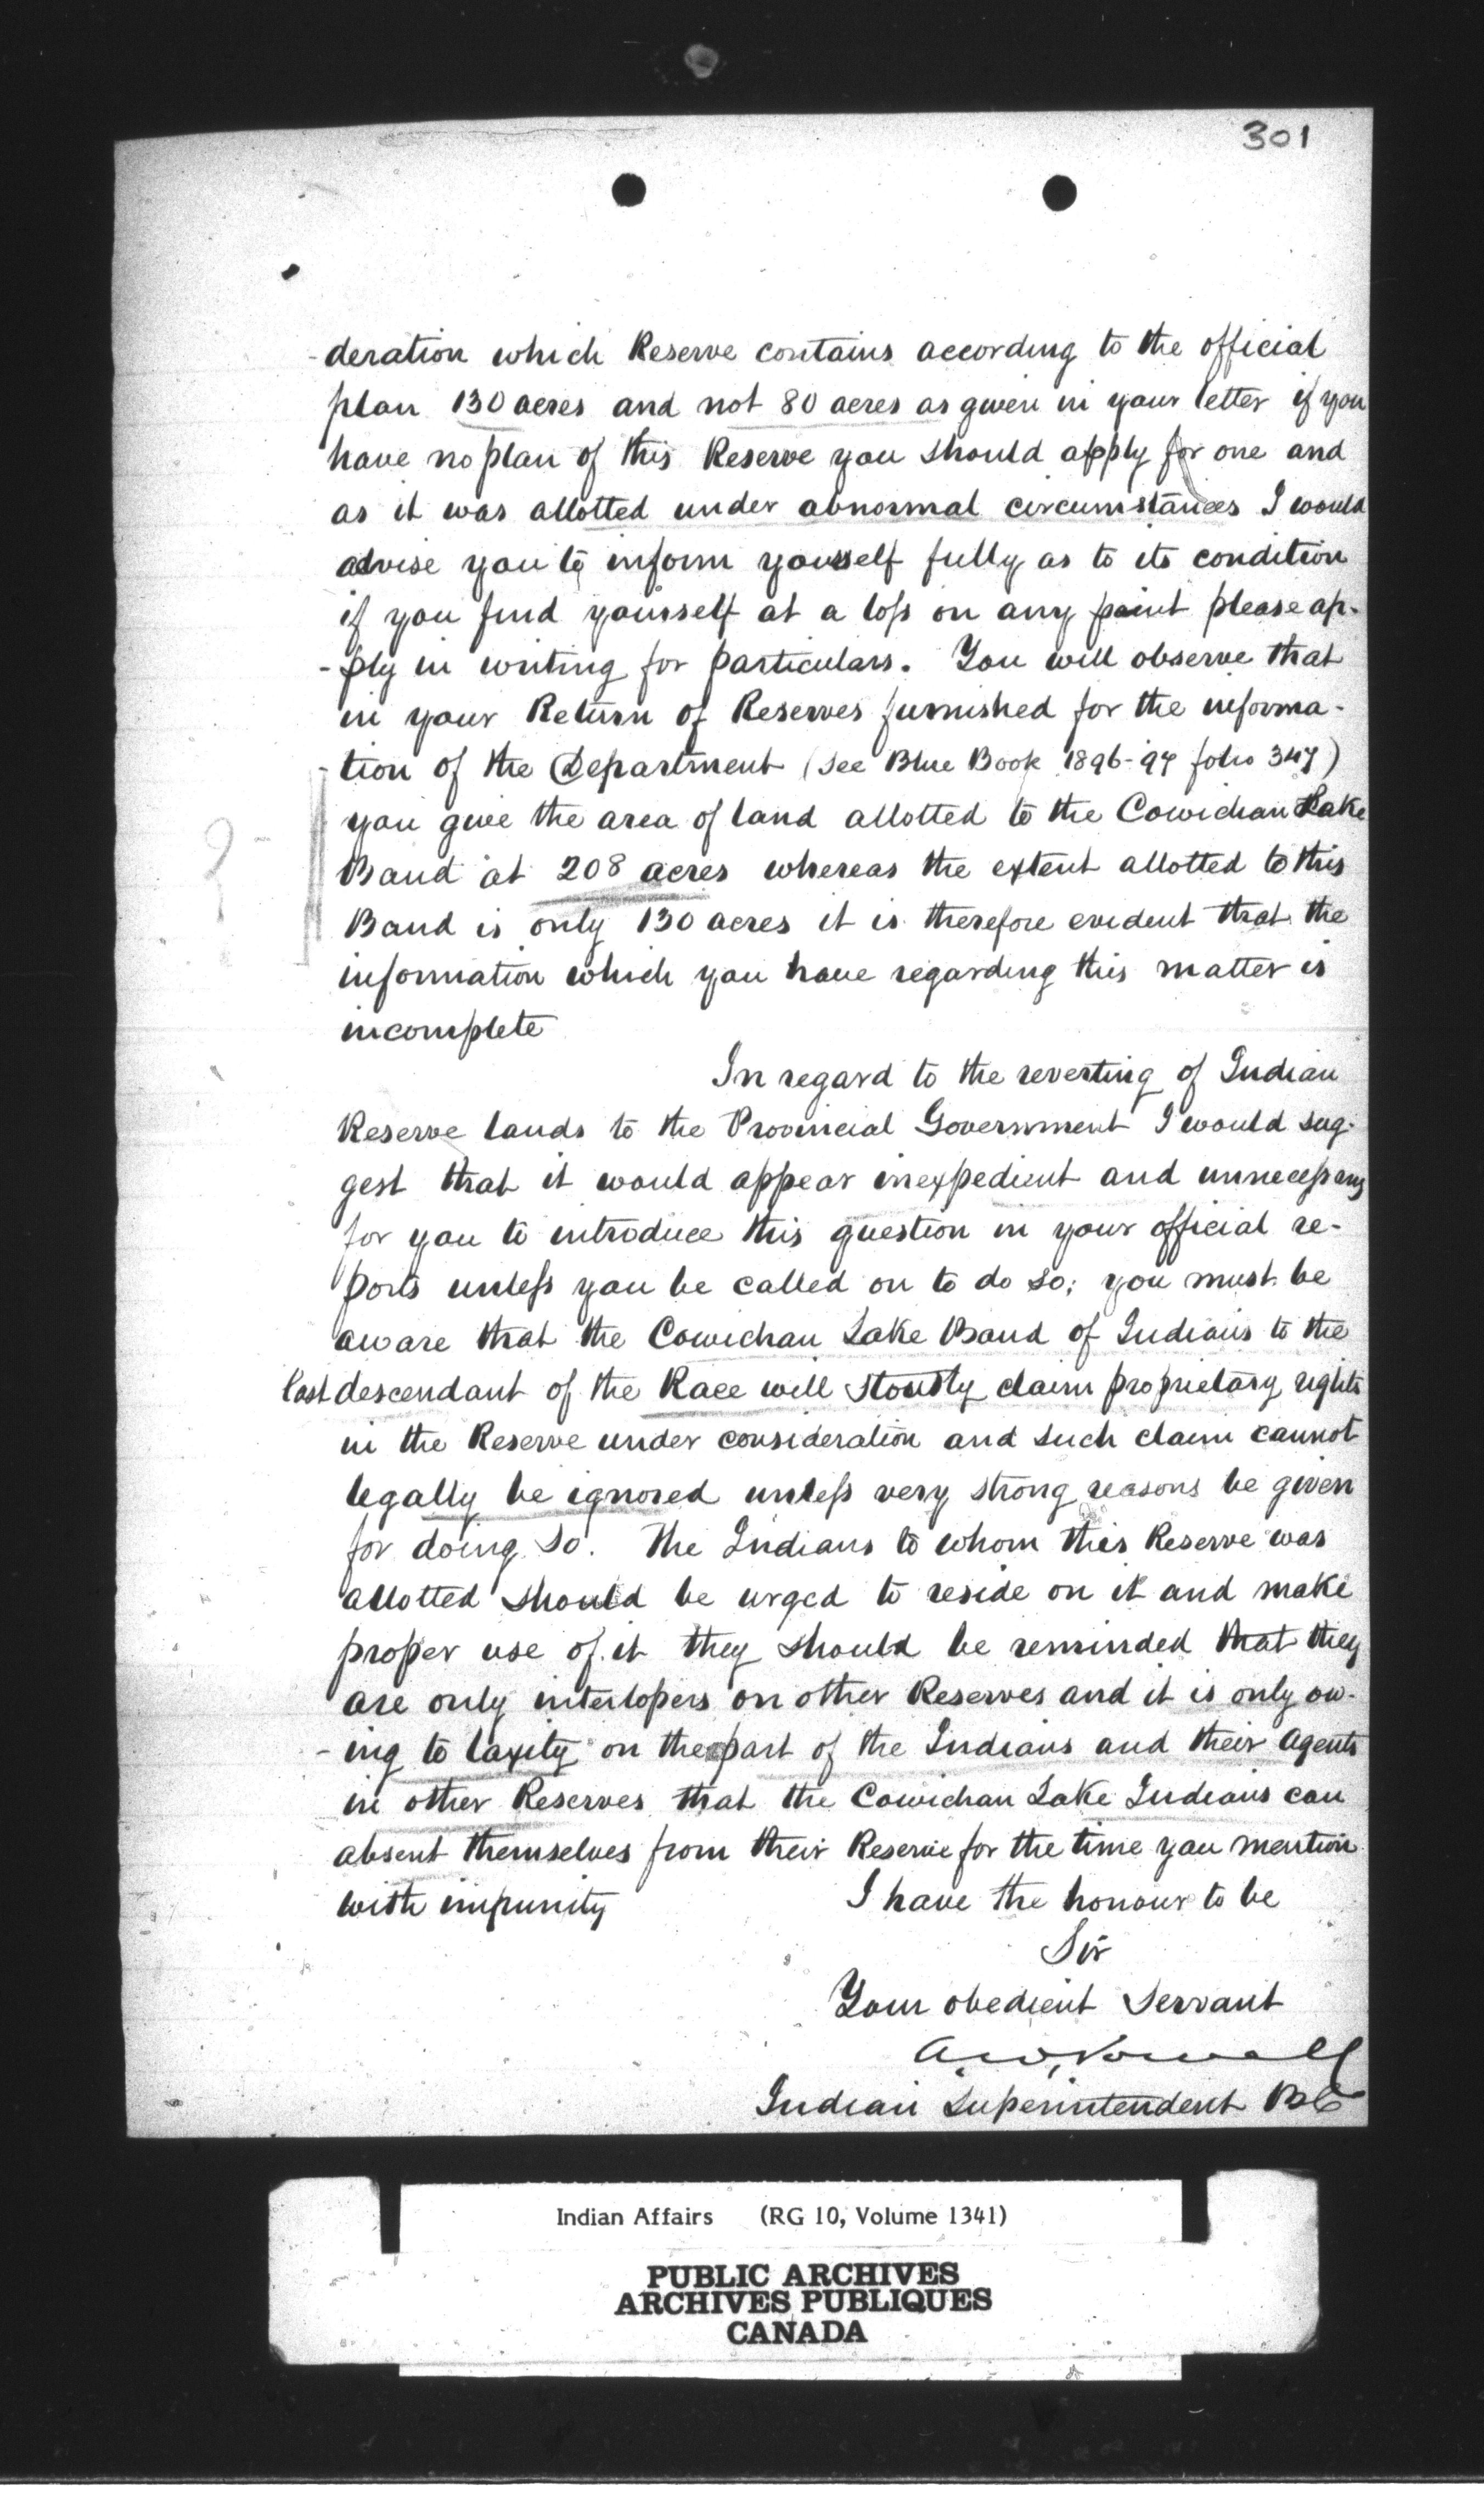 301
-deration which Reserve contains according to the official
plan 130 acres and not 80 acres as given in your letter if you
have no plan of this Reserve you should apply for one and
as it was allotted under abnormal circumstances I would
advise you to inform yourself fully as to its condition
if you find yourself at a loss on any point please ap-
-ply in writing for particulars. You will observe that
in your Return of Reserves furnished for the informa-
-tion of the Department (see Blue Book 1896-97 folio 347)
you give the area of land allotted to the Cowichan Lake
Band at 208 acres whereas the extent allotted to this
Band is only 130 acres it is therefore evident that the
information which you have regarding this matter is
incomplete
In regard to the reverting of Indian
Reserve lands to the Provincial Government I would sug-
gest that it would appear inexpedient and unnecessary
for you to introduce this question in your official re-
ports unless you be called on to do so; you must be
aware that the Cowichan Lake Band of Indians to the
last descendant of the Race will stoutly claim proprietary rights
in the Reserve under consideration and such claim cannot
legally be ignored unless very strong reasons be given
for doing so. The Indians to whom this Reserve was
allotted should be urged to reside on it and make
proper use of it they should be reminded that they
are only interlopers on other Reserves and it is only ow-
-ing to laxity on the part of the Indians and their Agents
in other Reserves that the Cowichan Lake Indians can
absent themselves from their Reserve for the time you mention
with impunity I have the honour to be
Sir
Your obedient Servant
A. W. Vowell
Indian Superintendent BC
Indian Affairs (RG 10, Volume 1341)
PUBLIC ARCHIVES
ARCHIVES PUBLIQUES
CANADA